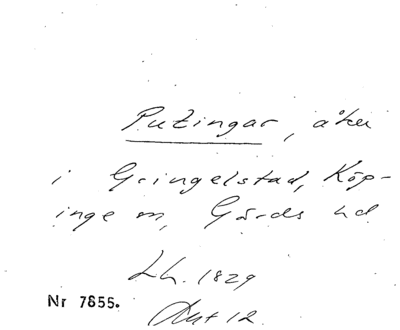 Putingar, åker
i Gringelstad, Köp-
inge sn, Gärds hd
Lh. 1829
Nr 7855.
Akt 12